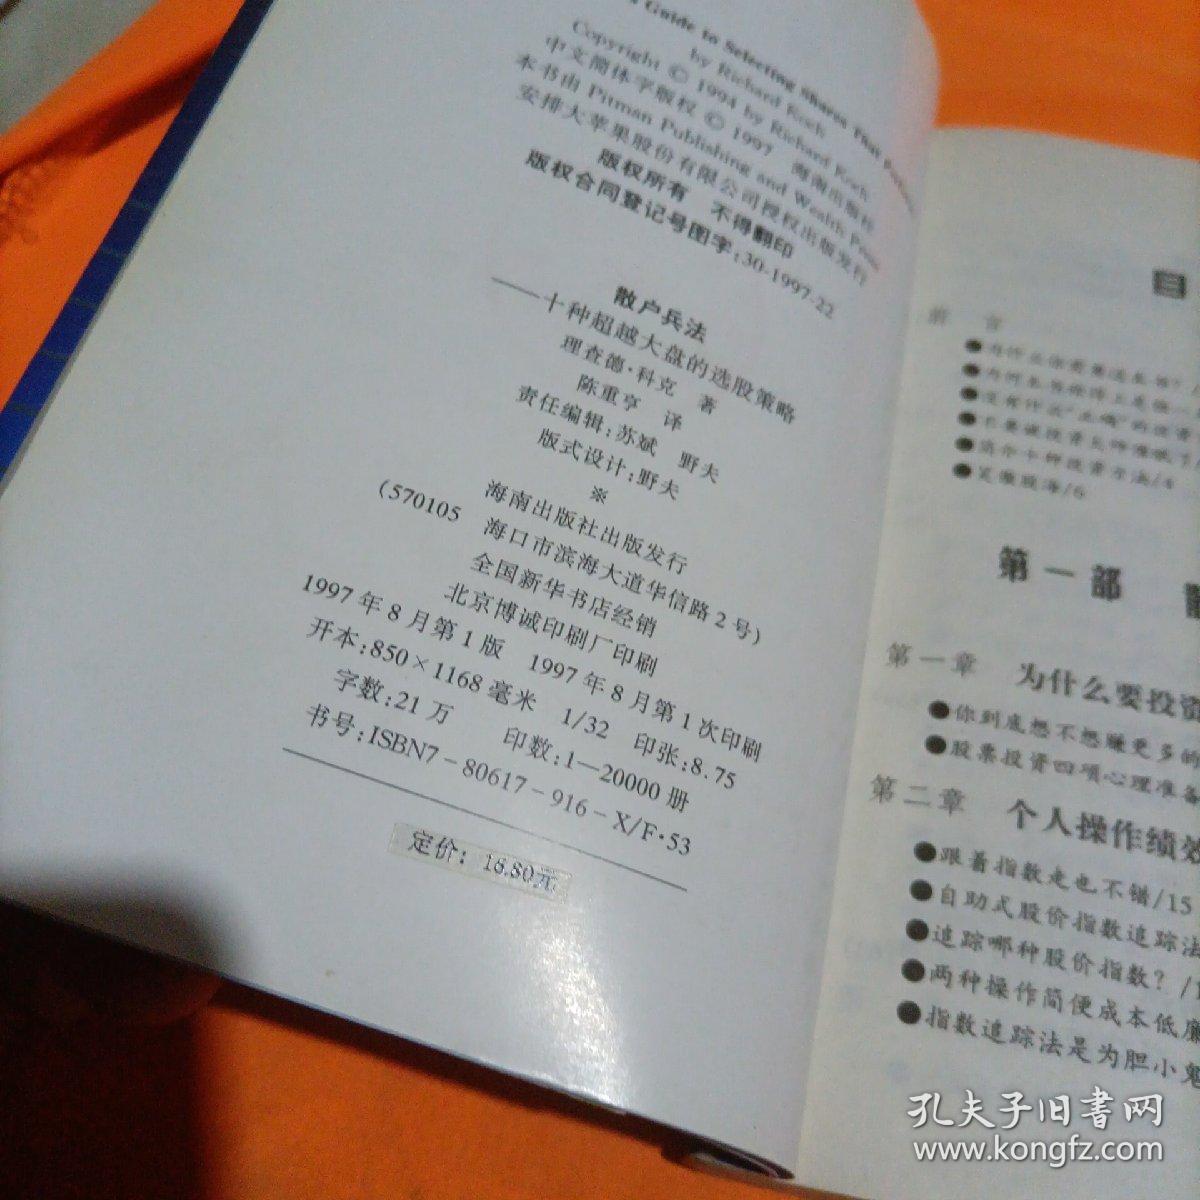 Guide to Selecting Shares That
by Richard Koch
Copyright © 1994 by Richard Koch
中文简体字版权 © 1997 海南出版社
本书由 Pitman Publishing and Wealth Press
安排大苹果股份有限公司授权出版发行
版权所有 不得翻印
版权合同登记号图字:30-1997-22
散户兵法
——十种超越大盘的选股策略
理查德·科克 著
陈重亨 译
责任编辑:苏斌 野夫
版式设计:野夫
※
海南出版社出版发行
(570105 海口市滨海大道华信路2号)
全国新华书店经销
北京博诚印刷厂印刷
1997年8月第1版 1997年8月第1次印刷
开本:850×1168毫米 1/32 印张:8.75
字数:21万 印数:1—20000册
书号:ISBN7-80617-916-X/F·53
定价: 16.80元
目
前 言
●为什么你要来这本书?
●没有什么“正确”的投资
●简介十种投资方法/4
●笑傲股海/6
第一部
第一章 为什么要投资
●你到底想不想赚更多的
●股票投资四项心理准备
第二章 个人操作绩效
●跟着指数走也不错/15
●自助式股价指数追踪法
●追踪哪种股价指数?/1
●两种操作简便成本低廉
●指数追踪法是为胆小鬼
孔夫子旧书网
www.kongfz.com